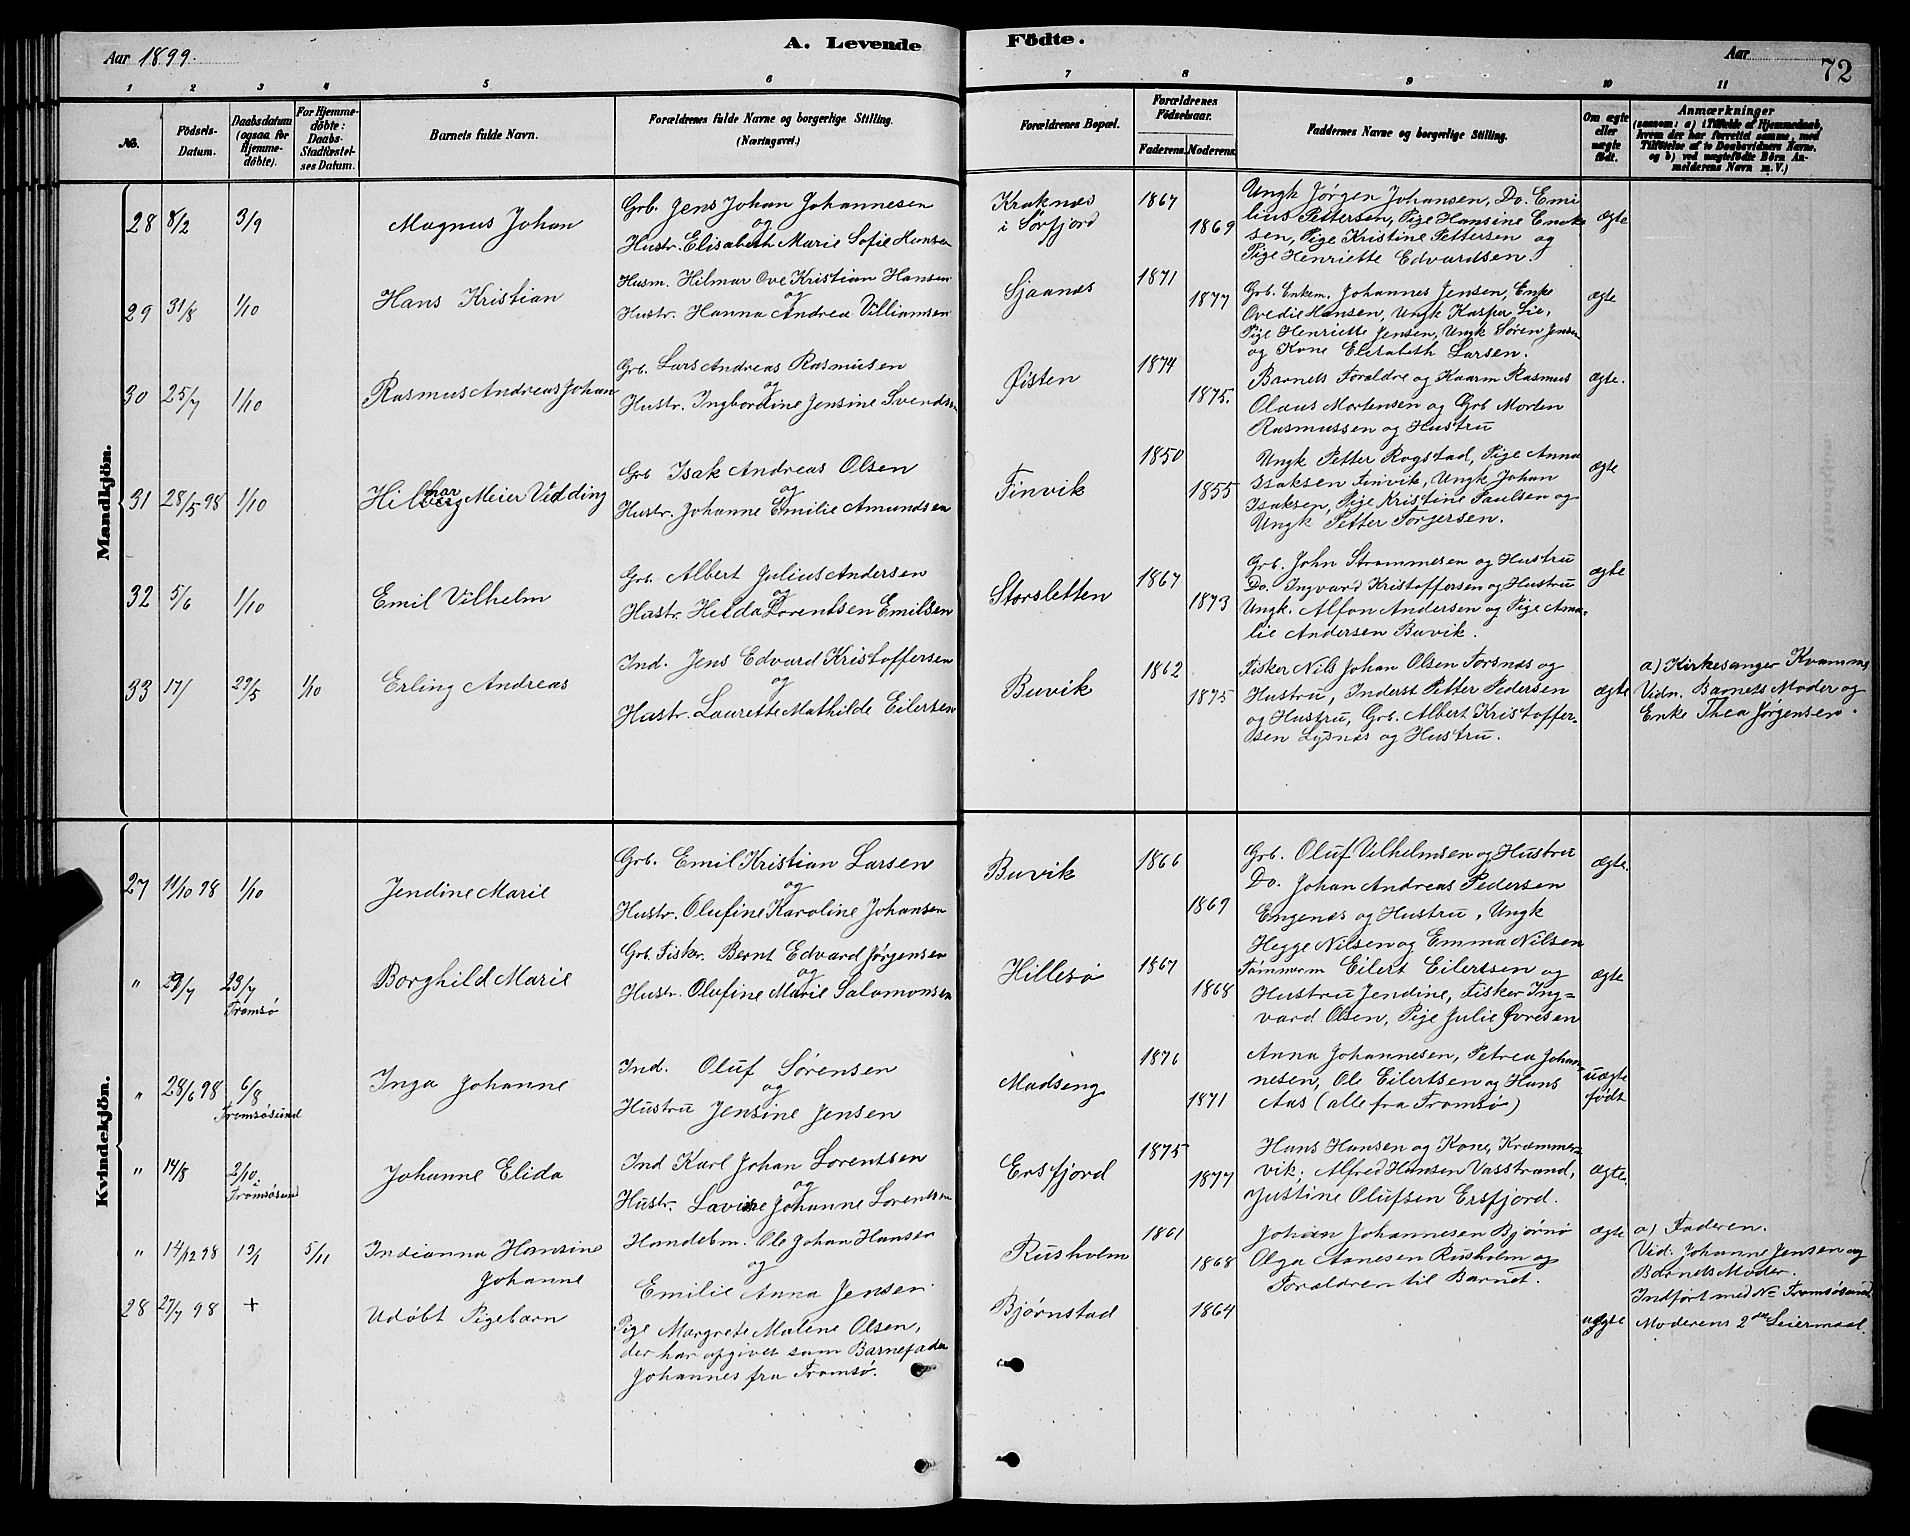 Aar 1899.
A. Levende
Födte.
Aar
72
1 2 3 4 5 6 7 8 9 10 11
No. Födsels-Datum. Daabsdatum (ogsaa for Hjemme-döbte). For Hjemme-döbte: Daabs-Stadfæstel-ses Datum. Barnets fulde Navn. Forældrenes fulde Navne og borgerlige Stilling. (Næringsvei.) Forældrenes Bopæl. Forældrenes Födselsaar. Faderens. Moderens. Faddernes Navne og borgerlige Stilling. Om ægte eller uægte födt. Anmærkninger
(saasom: a) i Tilfælde af Hjemmedaab, hvem der har forrettet samme, med Tilföielse af to Daabsvidners Navne, og b) ved uægtefödte Börn Anmelderens Navn m. V.)
Mandkjön.
28 8/2 3/9 Magnus Johan
Grb. Jens Johan Johannesen
og
Hustr. Elisabeth Marie Sofie Hansen
Kraknæs
i Sørfjord
1867
1869
Ungk Jørgen Johansen, Do. Emi-
lius Pettersen, Pige Hansine Enoks
sen, Pige Kristine Pettersen og
Pige Henriette Edvardsen.
ægte
29 31/8 1/10 Hans Kristian
Husm. Hilmar Ove Kristian Hansen
og
Hustr. Hanna Andrea Villiamsen
Sjaanæs
1871
1877
Grb. Enkem. Johannes Jensen, Enke
Ovedie Hansen, Ungk Kasper Lie,
Pige Henriette Jensen, Ungk Søren Jensen
og Kone Elisabeth Larsen.
ægte
30 25/7 1/10 Rasmus Andreas Johan
Grb. Lars Andreas Rasmusen
og
Hustr. Ingbordine Jensine Svendsen
Øisten
1874
1875.
Barnets Forældre og Kaarm Rasmus
Olaus Mortensen og Grb Morten
Rasmussen og Hustru
ægte.
31 28/5 98 1/10 Hilmar Meier Vidding
Grb Isak Andreas Olsen
og
Hustr. Johanne Emilie Amundsen
Finvik
1850
1855
Ungk Petter Rogstad, Pige Anna
Isaksen Finvik, Ungk Johan
Isaksen, Pige Kristine Paulsen og
Ungk Petter Torgersen.
ægte
32 5/6 1/10 Emil Vilhelm
Grb. Albert Julius Andersen
og
Hustr. Hilda Lorentsen Emilsen
Storsletten
1867
1873
Grb. John Strømmesen og Hustru
Do. Ingvard Kristoffersen og Hustru
Ungk. Alfon Andersen og Pige Ama-
lie Andersen Buvik.
ægte
33 17/ 29/5 1/10 Erling Andreas
Ind. Jens Edvard Kristoffersen
og
Hustr. Laurette Mathilde Eilertsen
Buvik
1862
1875
Fisker Nils Johan Olsen Forsnæs og
Hustru, Inderst Petter Pedersen
og Hustru, Grb. Albert Kristoffer-
sen Lysnæs og Hustru.
ægte
a) Kirkesanger Kvamme
Vidn. Barnets Moder og
Enke Thea Jørgensen.
Kvindekjön.
27 11/10 98 1/10 Jendine Marie
Grb. Emil Kristian Larsen
og
Hustr. Olufine Karoline Johansen
Buvik
1866
1869
Grb. Oluf Vilhelmsen og Hustru
Do. Johan Andreas Pedersen
Engenes og Hustru, Ungk
Hegge Nilsen og Emma Nilsen
ægte.
" 29/7 23/7 Tromsø Borghild Marie
Grb. Fisker. Bernt Edvard Jørgensen
og
Hustr. Olufine Marie Salomonsen
Hillesø
1867
1868
Tømmerm Eilert Eilertsen og
Hustru Jendine, Fisker Ing-
vard Olsen, Pige Julie Ovresen
ægte
" 28/6 98 6/8 Tromsøsund Inga Johanne
Ind. Oluf Sørensen
og
Hustru Jensine Jensen
Madseng
1876
1871
Anna Johannesen, Petrea Johan-
nesen, Ole Eilertsen og Hans
Aas (alle fra Tromsø)
uægte
født
" 14/8 2/10. Tromsøsund Johanne Elida
Ind Karl Johan Lorentsen
og
Hustr. Lavine Johanne Lorentsen
Ersfjord
1875
1877
Hans Hansen og Kone, Kræmmer-
vik; Alfred Hansen Vasstrand,
Justine Olufsen Ersfjord.
ægte.
" 14/12 98 13/1 5/11 Indianna Hansine
Johanne
Handelsm. Ole Johan Hansen
og
Emilie Anna Jensen
Rusholm
1861
1868
Johan Johannesen Bjørnø
Olga Aanesen Rusholm og
Forældren til Barnet.
ægte
a) Faderen.
Vid. Johanne Jensen og
Barnets Moder.
Indført med No Tromsøsund
28 27/7 98 + Udøbt Pigebarn
Pige Margrete Malene Olsen,
der har opgivet som Barnefader
Johannes fra Tromsø.
Bjørnstad
1864
uægte
Moderens 2den Leiermaal.